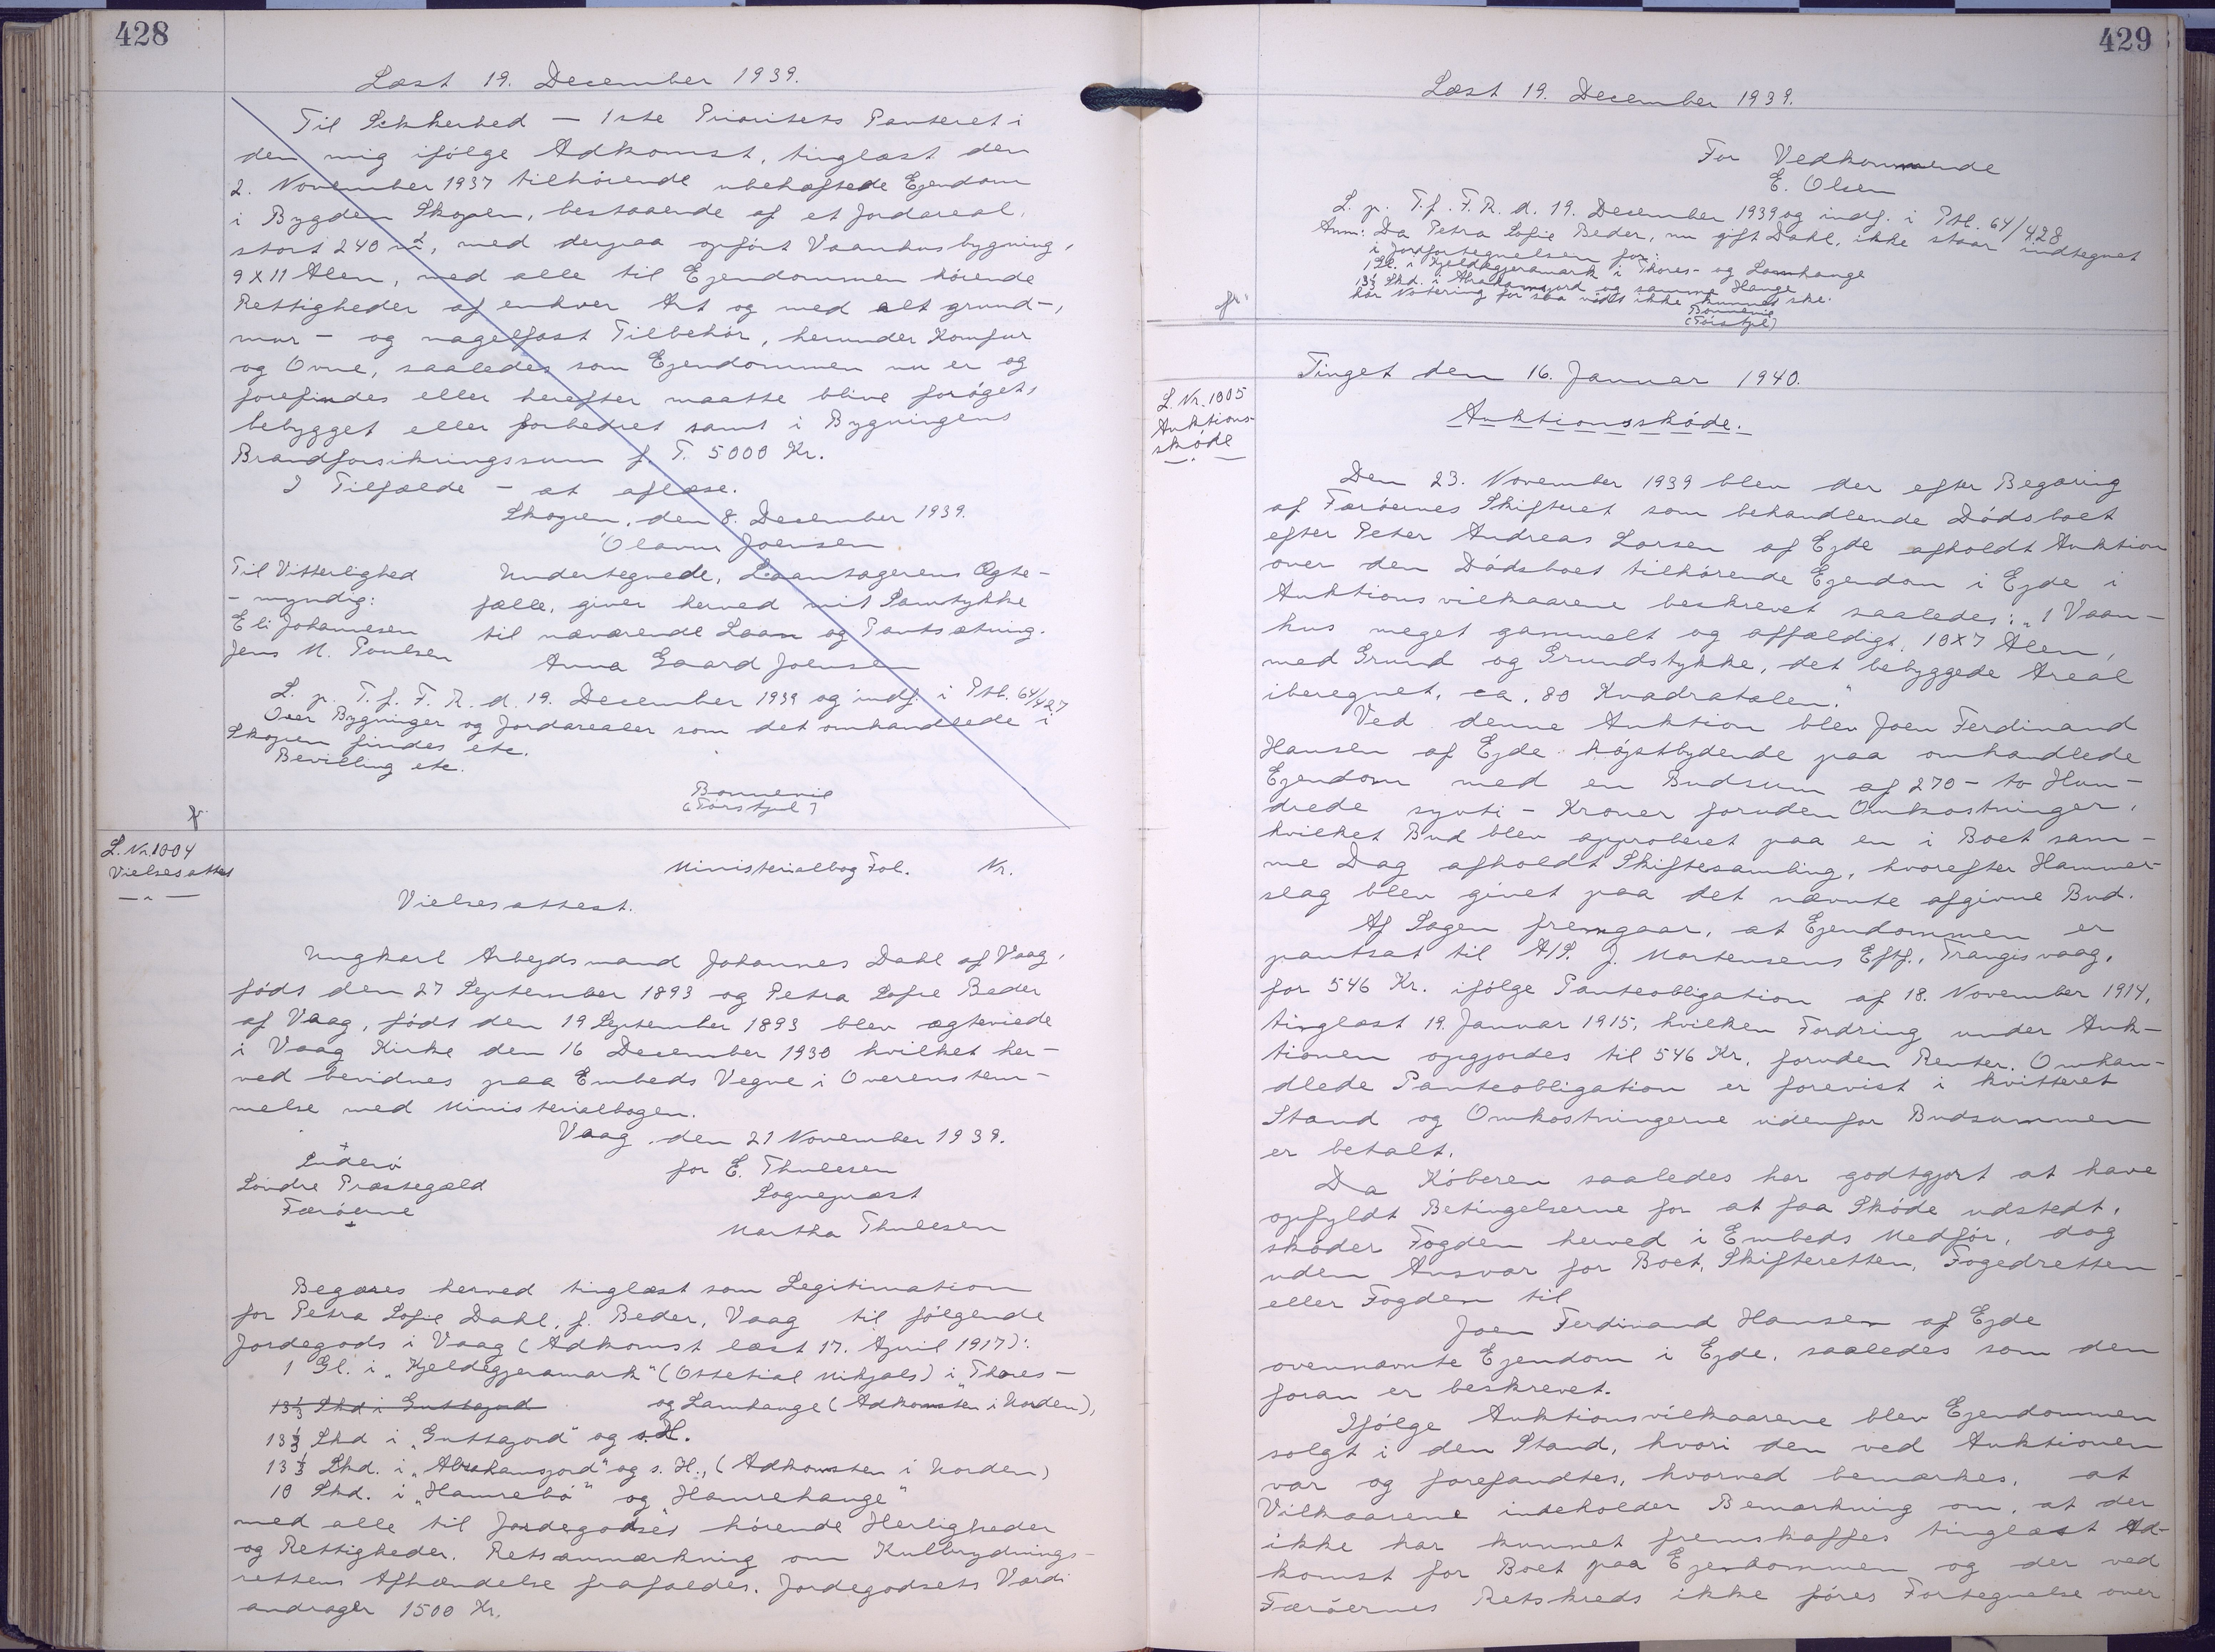 428
Læst 19. December 1939.
Til Sikkerhed — 1ste Prioritets Panteret i
den mig ifölge Adkomst, tinglæst den
2. November 1937 tilhörende ubehæftede Ejendom
i Bygden Skopen, bestaaende af et Jordareal,
stort 240 m², med derpaa opfört Vaanhusbygning,
9 X 11 Alen, med alle til Ejendommen hörende
Rettigheder af enhver Art og med alt grund-,
mur- og nagelfast Tilbehör, herunder Komfur
og Ovne, saaledes som Ejendommen nu er og
forefindes eller herefter maatte blive foröget,
bebygget eller forbedret samt i Bygningens
Brandforsikringssum f. T. 5000 Kr.
I Tilfælde - at aflæse.
Skopen, den 8. December 1939.
Olavur Joensen
Til Vitterlighed
- myndig:
Eli Johannesen
Jens M. Poulsen
Undertegnede, Laantagerens Ægte-
fælle, giver herved mit Samtykke
til næværende Laan og Pantsætning.
Anna Gaard Joensen
L. p. T. f. F. R. d. 19. December 1939 og indf. i Ptb. 64/427
Over Bygninger og Jordarealer som det omhandlede i
Skopen findes etc.
Bevilling etc.
Bonnevie
(Törskjel)
fr.
L. Nr. 1004
Vielsesattest
Ministerialbog Fol. Nr.
Vielsesattest.
Ungkarl Arbejdsmand Johannes Dahl af Vaag,
födt den 27 September 1893 og Petra Sofie Beder
af Vaag, födt den 19 September 1893 blev ægteviede
i Vaag Kirke den 16 December 1930 hvilket her-
ved bevidnes paa Embeds Vegne i Overenstem-
melse med Ministerialbogen.
Vaag, den 21 November 1939.
Suderö
Söndre Præstegæld
Færöerne
for E. Thulesen
Sognepræst
Martha Thulesen
Begæres herved tinglæst som Legitimation
for Petra Sofie Dahl, f. Beder, Vaag til fölgende
Jordegods i Vaag (Adkomst læst 17. April 1917):
1 Gl. i "Kjeldegjeramark" (Ottetial Mikjals) i "Thores-
13⅓ Skd i Guttagord og Lamhange (Adkomsten i Norden),
13⅓ Skd i "Guttagord" og s.H.
13⅓ Skd. i "Abrahamsgord" og s. H., (Adkomsten i Norden)
10 Skd. i "Hamrebö" og "Hamrehange"
med alle til Jordegodset hörende Herligheder
og Rettigheder. Retsanmærkning om Kulbrydnings-
rettens Afhændelse frafaldes. Jordegodsets Værdi
andrager 1500 Kr.
429
Læst 19. December 1939.
For Vedkommende
E. Olsen
L. p. T. f. F. R. d. 19. December 1939 og indf. i Ptb. 64/428
Anm: Da Petra Sofie Beder, nu gift Dahl, ikke staar indtegnet
i Jordfortegnelsen for:
1 Gl. i Kjeldegjeramark i Thores- og Lamhange
13⅓ Skd. i Abrahamsgord og samme Hange
har Notering for saa vidt ikke kunnet ske.
Bonnevie
(Törskjel)
fr.
Tinget den 16. Januar 1940.
L. Nr. 1005
Auktions-
sköde
Auktionssköde.
Den 23. November 1939 blev der efter Begæring
af Færöernes Skifteret som behandlende Dödsboet
efter Peter Andreas Larsen af Ejde afholdt Auktion
over den Dödsboet tilhörende Ejendom i Ejde i
Auktionsvilkaarene beskrevet saaledes: "1 Vaan-
hus meget gammelt og affældigt, 10X7 Alen,
med Grund og Grundstykke, det bebyggede Areal
iberegnet, ca. 80 Kvadratalen."
Ved denne Auktion blev Joen Ferdinand
Hansen af Ejde höjstbydende paa omhandlede
Ejendom med en Budsum af 270 - to Hun-
drede syvti - Kroner foruden Omkostninger,
hvilket Bud blev approberet paa en i Boet sam-
me Dag afholdt Skiftesamling, hvorefter Hammer-
slag blev givet paa det nævnte afgivne Bud.
Af Sagen fremgaar, at Ejendommen er
pantsat til A/S. J. Mortensens Eftf., Trangisvaag,
for 546 Kr. ifölge Panteobligation af 18. November 1914,
tinglæst 19. Januar 1915, hvilken Fordring under Auk-
tionen opgjordes til 546 Kr. foruden Renter. Omhan-
dlede Panteobligation er forevist i kvitteret
Stand og Omkostningerne udenfor Budsummen
er betalt.
Da Köberen saaledes har godtgjort at have
opfyldt Betingelserne for at faa Sköde udstedt,
sköder Fogden herved i Embeds Medför, dog
uden Ansvar for Boet, Skifteretten, Fogedretten
eller Fogden til
Joen Ferdinand Hansen af Ejde
ovennævnte Ejendom i Ejde, saaledes som den
foran er beskrevet.
Ifölge Auktionsvilkaarene blev Ejendommen
solgt i den Stand, hvori den ved Auktionen
var og forefandtes, hvorved bemærkes, at
Vilkaarene indeholder Bemærkning om, at der
ikke har kunnet fremskaffes tinglæst Ad-
komst for Boet paa Ejendommen og der ved
Færöernes Retskreds ikke föres Fortegnelse over